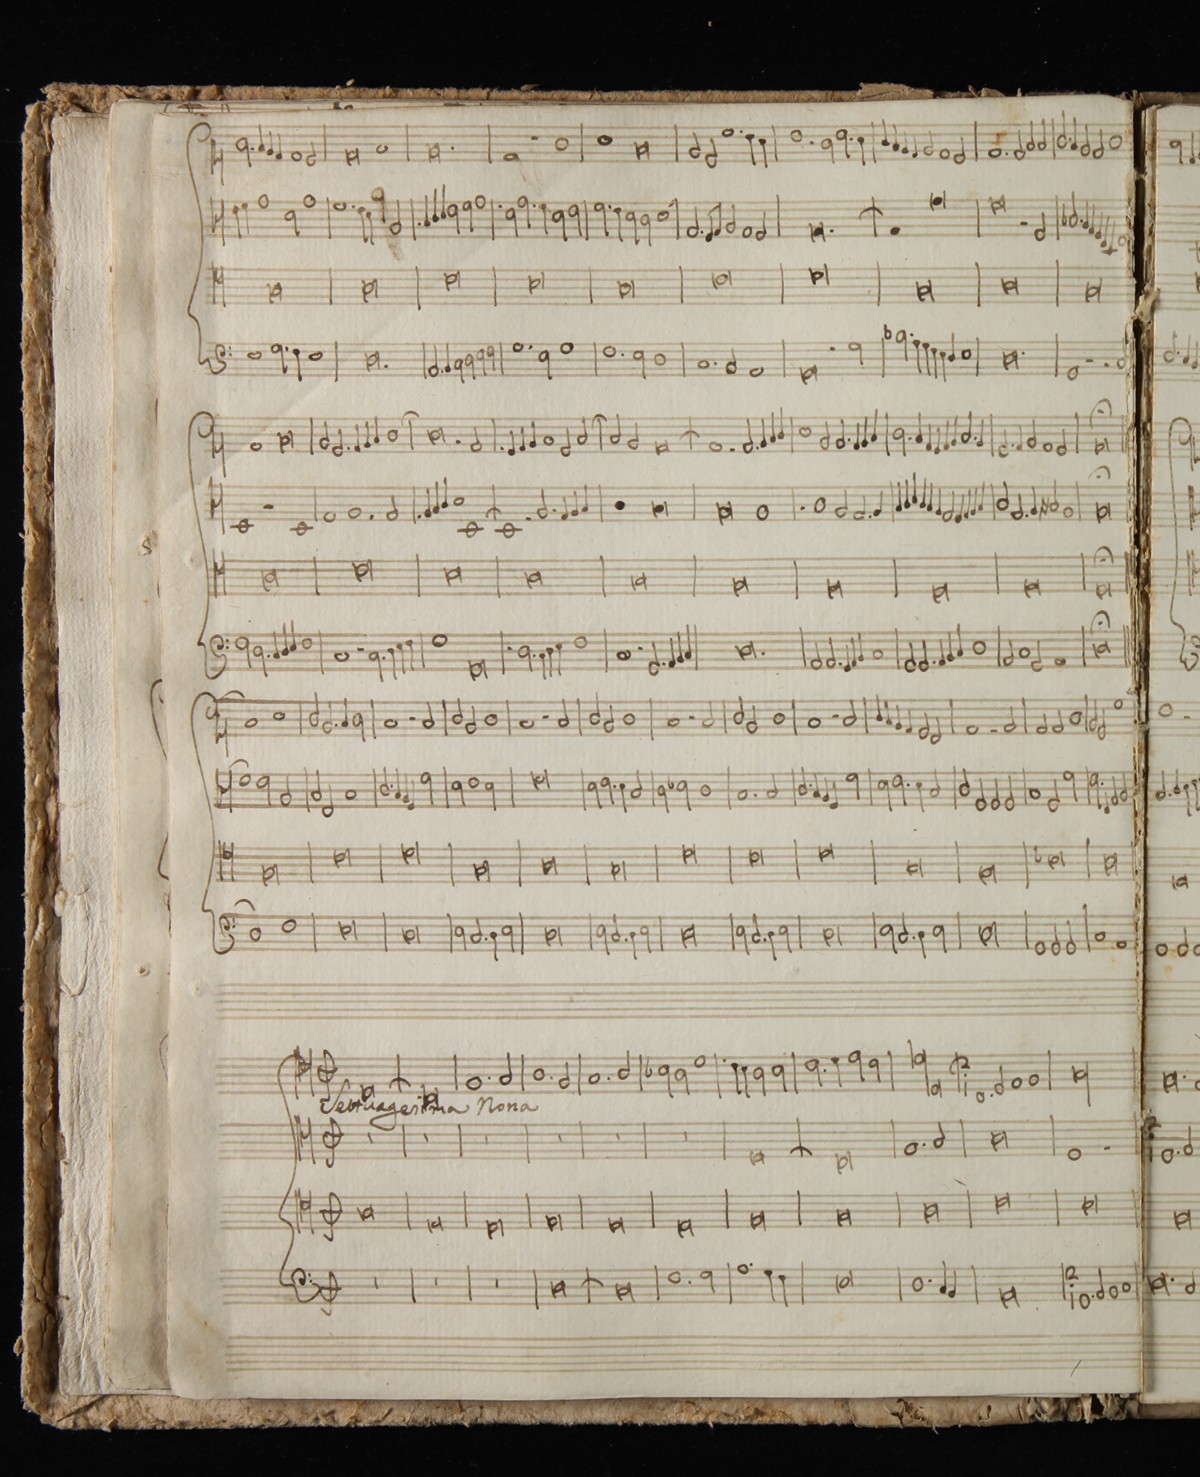 Septuagesima Nona